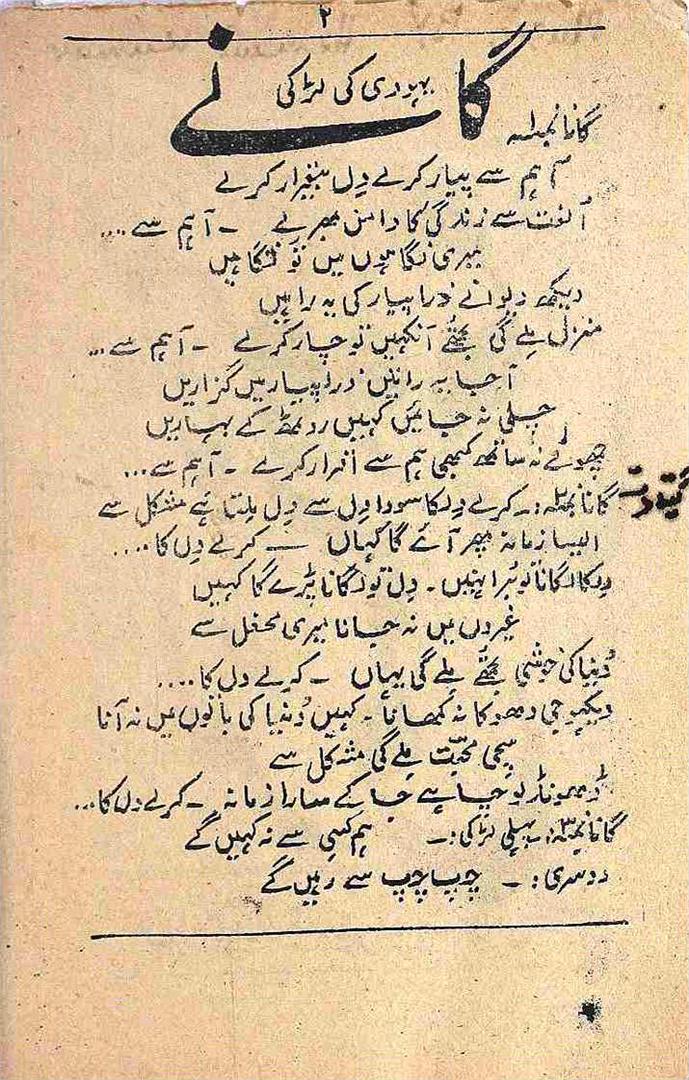 ۲
گانے
یہودی کی لڑکی
گانا نمبر۱
آ ہم سے پیار کرلے دِل بیقرار کرلے
اُلفت سے زندگی کا دامن بھرلے ۔ آ ہم سے ....
میری نگاہوں میں تو
دیکھ دیوانے ذرا پیار کی یہ راہیں
منزل ملے گی تجھے آنکھیں تو چار کرلے ۔ آ ہم سے ...
آ جا یہ راتیں ذرا پیار میں گزاریں
چلی نہ جائیں کہیں روٹھ کے بہاریں
چھوٹے نہ ساتھ کبھی ہم سے اقرار کرلے ۔ آ ہم سے ...
گانا نمبر۲ :۔ کرلے دِل کا سودا دِل سے دِل ملتا ہے مشکل سے
ایسا زمانہ پھر آئے گا کہاں ۔ کرلے دِل کا ....
دِل کا لگانا تو بُرا نہیں ۔ دِل تو لگانا پڑے گا کہیں
غیروں میں نہ جانا میری محفل سے
دُنیا کی خوشی تجھے ملے گی یہاں ۔ کرلے دل کا ....
دیکھو جی دھوکا نہ کھانا ۔ کہیں دُنیا کی باتوں میں نہ آنا
سچی محبّت ملے گی مشکل سے
ڈھونڈ لو چاہے جا کے سارا زمانہ ۔ کرلے دل کا ...
گانا نمبر۳ :۔ پہلی لڑکی :۔ ہم کسی سے نہ کہیں گے
دوسری :۔ چپ چاپ سے رہیں گے